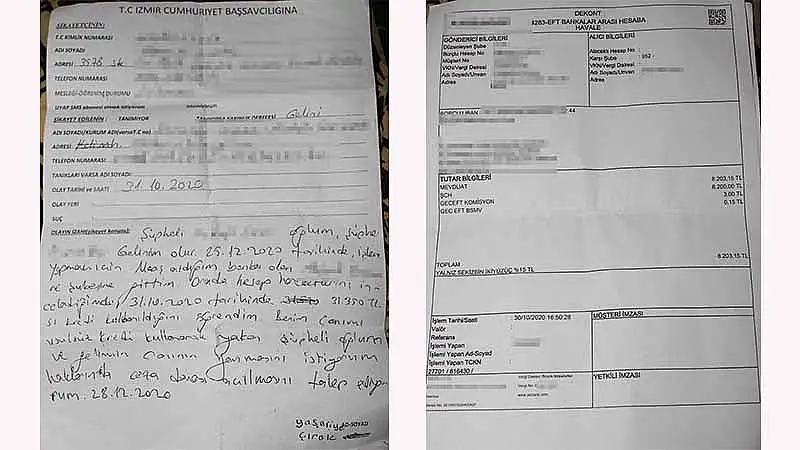 T.C İZMİR CUMHURİYET BAŞSAVCILIĞINA
ŞİKAYETÇİNİN:
T.C KİMLİK NUMARASI
ADI SOYADI
ADRESİ 3578 sk
TELEFON NUMARASI
MESLEĞİ ÖĞRENİM DURUMU
UYAP SMS abonesi olmak istiyorum istemiyorum
ŞİKAYET EDİLENİN: TANIMIYOR Gelini
ADI SOYADI/KURUM ADI(varsaT.C no)
ADRESİ
TELEFON NUMARASI
TANIKLARI VARSA ADI SOYADI:
OLAY TARİHİ ve SAATİ 31.10.2020
OLAY YERİ
SUÇ
OLAYIN İZAHI(şikayet konusu): Şüpheli oğlum, şüphe
Gelinim olur. 25.12.2020 tarihinde, işlem
yapmam için Maaş aldığım, banka olan
ve şubesine gittim Orada hesap hareketlerini in-
celediğimde, 31.10.2020 tarihinde 31.350 TL
sı kredi kullanıldığını öğrendim. Benim
kredi kullanarak şüpheli oğlum
ve gelinimin istiyorum
hakkında ceza davası açılmasını talep ediyo
rum. 28.12.2020
ADI-SOYAD
DEKONT
I263-EFT BANKALAR ARASI HESABA
HAVALE
GÖNDERİCİ BİLGİLERİ
Düzenleyen Şube
Borçlu Hesap No
Müşteri No
VKN/Vergi Dairesi
Adı Soyadı/Unvan
Adres
ALICI BİLGİLERİ
Alacaklı Hesap No
Karşı Şube : 952 -
VKN/Vergi Dairesi
Adı Soyadı/Unvan
Adres
BORÇLU IBAN 44
TUTAR BİLGİLERİ 8 203,15 TL
MEVDUAT 8.200,00 TL
ŞCH 3,00 TL
GECEFT KOMİSYON 0,15 TL
GEC EFT BSMV
TOPLAM 8.203,15 TL
YALNIZ SEKİZBİN İKİYÜZÜÇ %15 TL
İşlem Tarihi/Saati : 30/10/2020 16:50:28
Valör
Referans
İşlemi Yapan
İşlemi Yapan Ad-Soyad
İşlemi Yapan TCKN
27701 / 816430 /
MÜŞTERİ İMZASI
YETKİLİ İMZASI